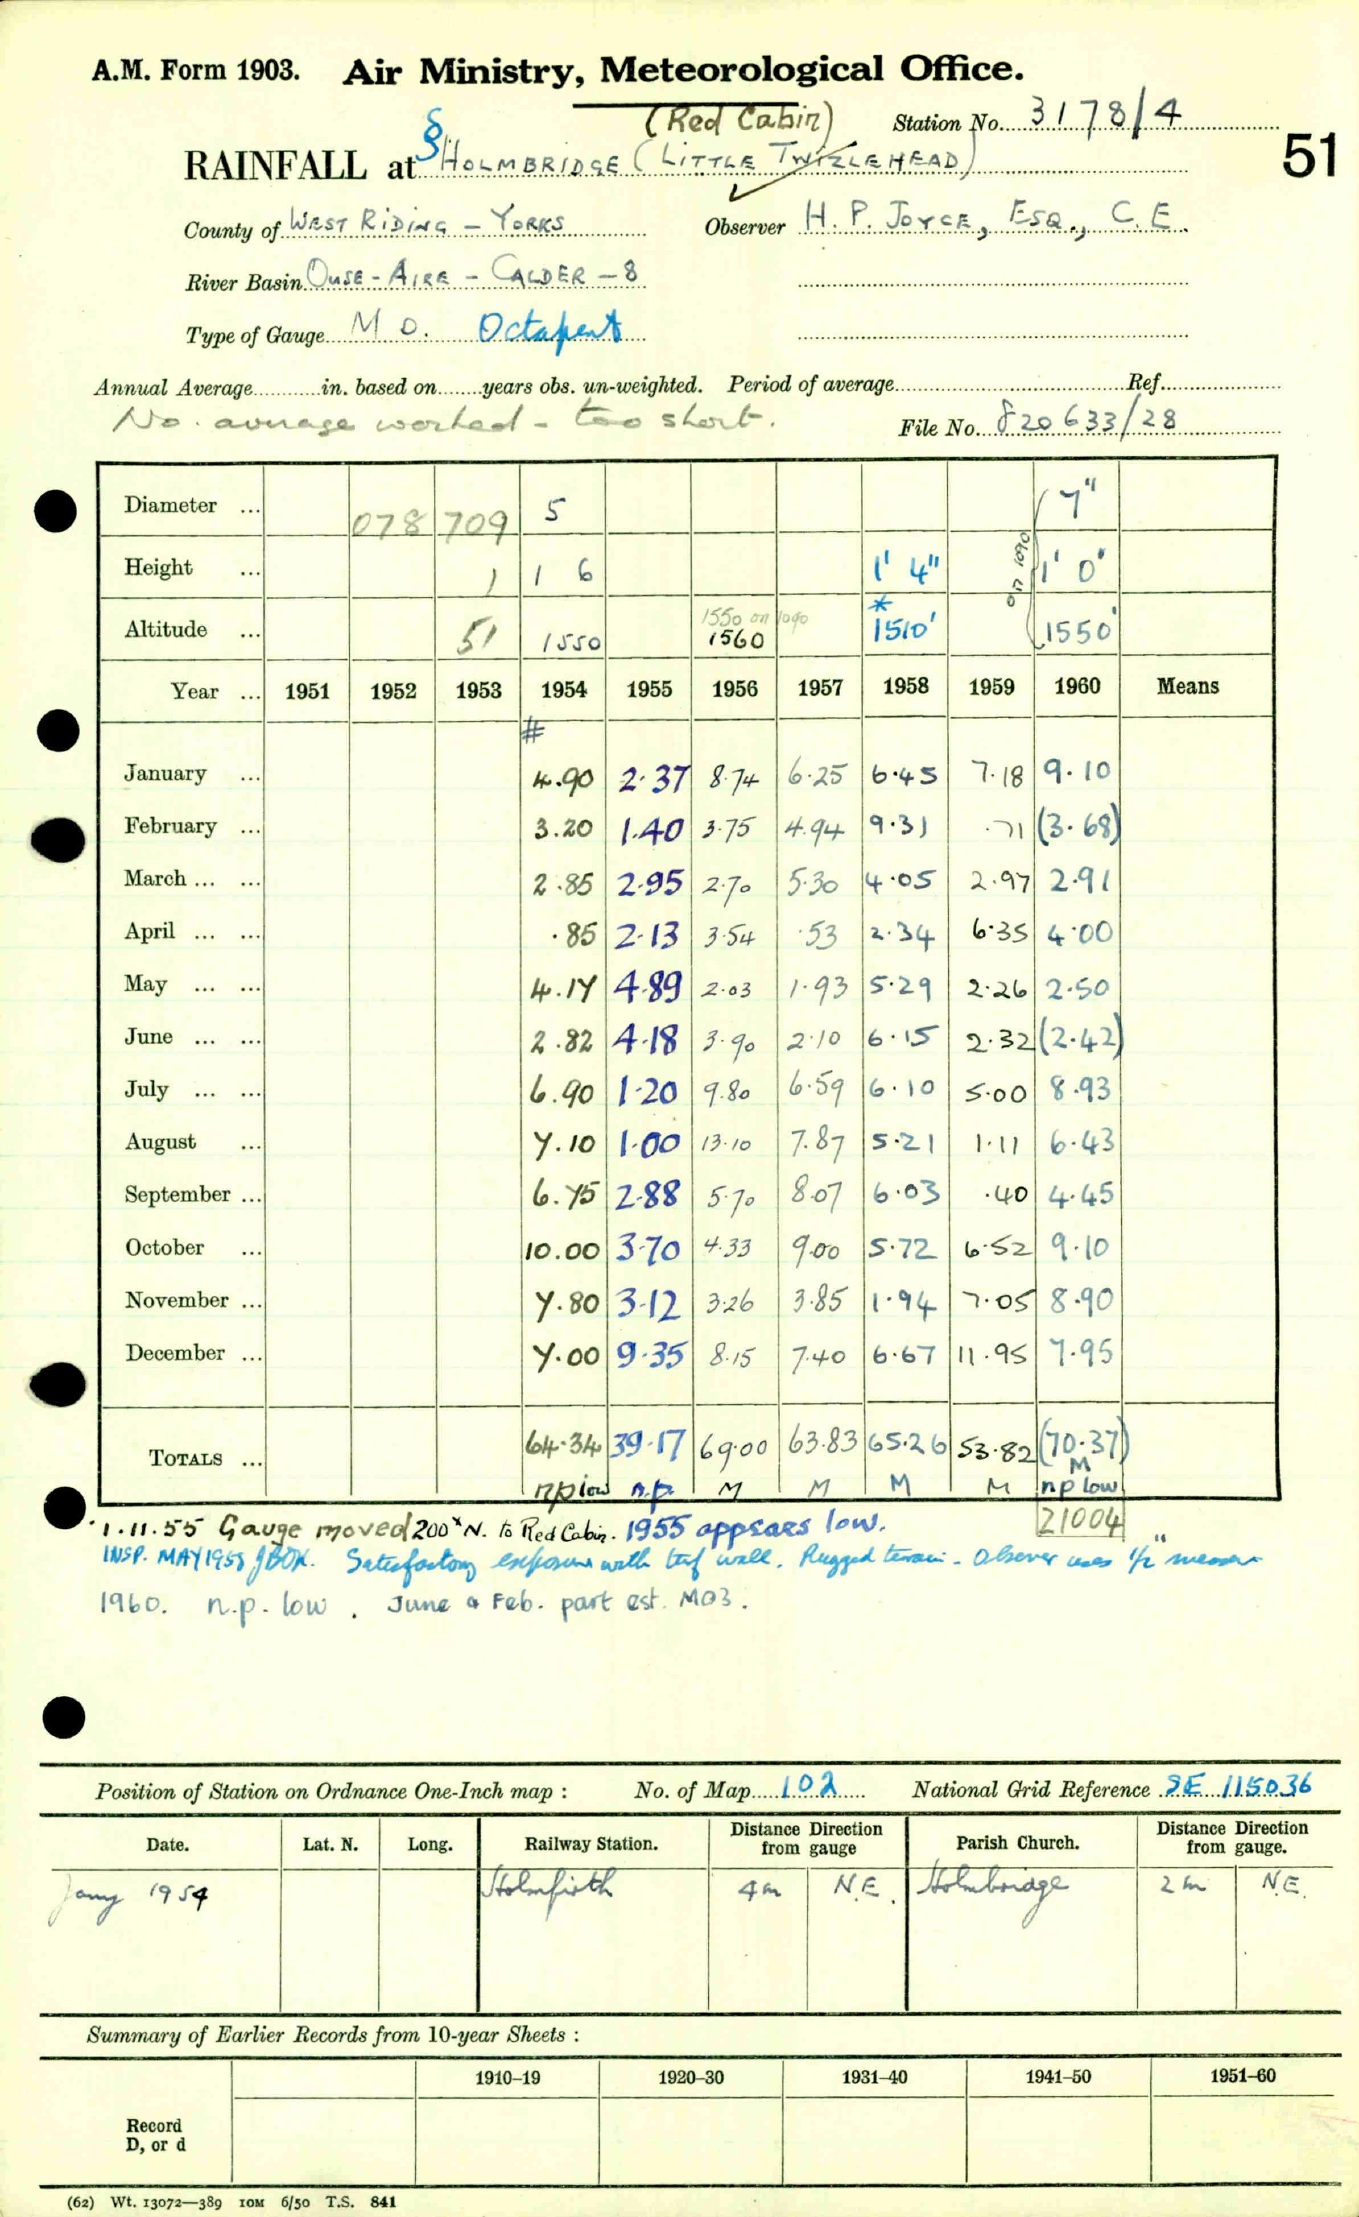 A.M. Form 1903. Air Ministry, Meteorological Office.
(Red Cabin) Station No. 3178/4
51
RAINFALL at § HOLMBRIDGE (LITTLE TWIZLEHEAD)
County of WEST RIDING - YORKS Observer H. P. JOYCE, ESQ., C.E.
River Basin OUSE - AIRE - CALDER - 8
Type of Gauge M O. Octapent
Annual Average in. based on years obs. un-weighted. Period of average Ref.
No average worked - too short. File No. 820633/28
Diameter ... 078 709 5 7"
Height ... 1 1 6 1' 4" on 1090 1' 0"
1550 on 1090 *
Altitude ... 51 1550 1560 1510' 1550'
Year ... 1951 1952 1953 1954 1955 1956 1957 1958 1959 1960 Means
#
January ... 4.90 2.37 8.74 6.25 6.45 7.18 9.10
February ... 3.20 1.40 3.75 4.94 9.31 .71 (3.68)
March ... ... 2.85 2.95 2.70 5.30 4.05 2.97 2.91
April ... ... .85 2.13 3.54 .53 2.34 6.35 4.00
May ... ... 4.17 4.89 2.03 1.93 5.29 2.26 2.50
June ... ... 2.82 4.18 3.90 2.10 6.15 2.32 (2.42)
July ... ... 6.90 1.20 9.80 6.59 6.10 5.00 8.93
August ... 7.10 1.00 13.10 7.87 5.21 1.11 6.43
September ... 6.75 2.88 5.70 8.07 6.03 .40 4.45
October ... 10.00 3.70 4.33 9.00 5.72 6.52 9.10
November ... 7.80 3.12 3.26 3.85 1.94 7.05 8.90
December ... 7.00 9.35 8.15 7.40 6.67 11.95 7.95
TOTALS ... 64.34 39.17 69.00 63.83 65.26 53.82 (70.37)
M
np low n.p. M M M M np low
21004
1.11.55 Gauge moved 200x N. to Red Cabin. 1955 appears low.
INSP. MAY 1958 JBOX. Satisfactory exposure with turf wall. Rugged terrain - Observer uses 1/2" measure
1960. n.p. low. June & Feb. part est. MO3.
Position of Station on Ordnance One-Inch map : No. of Map 102 National Grid Reference SE 115036
Date. Lat. N. Long. Railway Station. Distance Direction from gauge Parish Church. Distance Direction from gauge.
Jany 1954 Holmfirth 4m N.E. Holmbridge 2m N.E.
Summary of Earlier Records from 10-year Sheets :
1910–19 1920–30 1931–40 1941–50 1951–60
Record
D, or d
(62) Wt. 13072—389 10M 6/50 T.S. 841